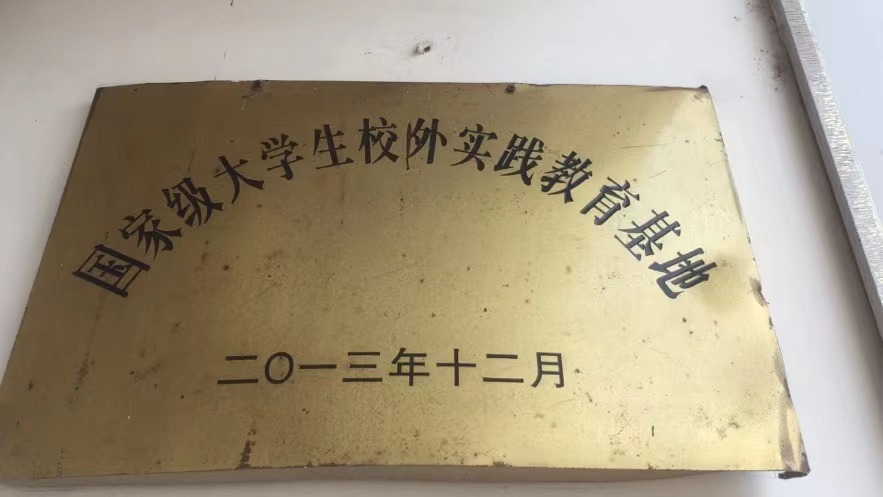 国家级大学生校外实践教育基地
二〇一三年十二月